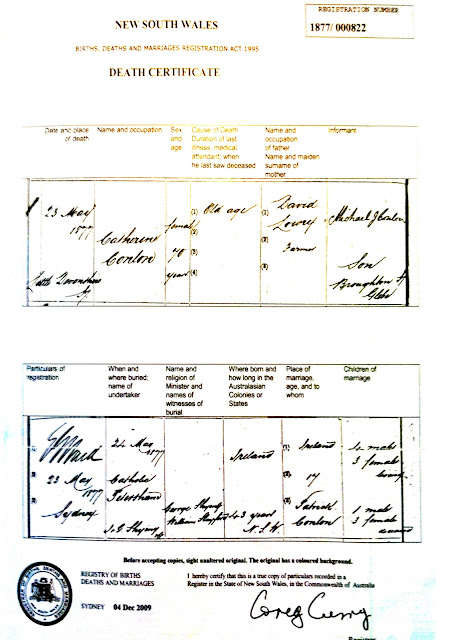 REGISTRATION NUMBER
1877/ 000822
NEW SOUTH WALES
BIRTHS, DEATHS AND MARRIAGES REGISTRATION ACT 1995
DEATH CERTIFICATE
Date and place of death
Name and occupation
Sex and age
Cause of Death
Duration of last illness; medical attendant; when he last saw deceased
Name and occupation of father
Name and maiden surname of mother
Informant
23 May
1877
Little Devonshire St
Catherine
Conlon
female
70
years
(1) Old age
(2)
(3)
(4)
(1) David
Lowry
(2)
Farmer
(3)
Michael J Conlon
Son
Broughton St
Glebe
Particulars of registration
When and where buried; name of undertaker
Name and religion of Minister and names of witnesses of burial
Where born and how long in the Australasian Colonies or States
Place of marriage, age, and to whom
Children of marriage
(1)
(2)
23 May
1877
(3)
Sydney
24 May
1877
Catholic
Petersham
George
William
Ireland
43 years
N.S.W.
(1) Ireland
(2) 17
(3) Patrick
Conlon
4 male
3 female
living
1 male
3 female
deceased
Before accepting copies, sight unaltered original. The original has a coloured background.
REGISTRY OF BIRTHS
DEATHS AND MARRIAGES
SYDNEY 04 Dec 2009
I hereby certify that this is a true copy of particulars recorded in a
Register in the State of New South Wales, in the Commonwealth of Australia
Greg Curry
Registrar